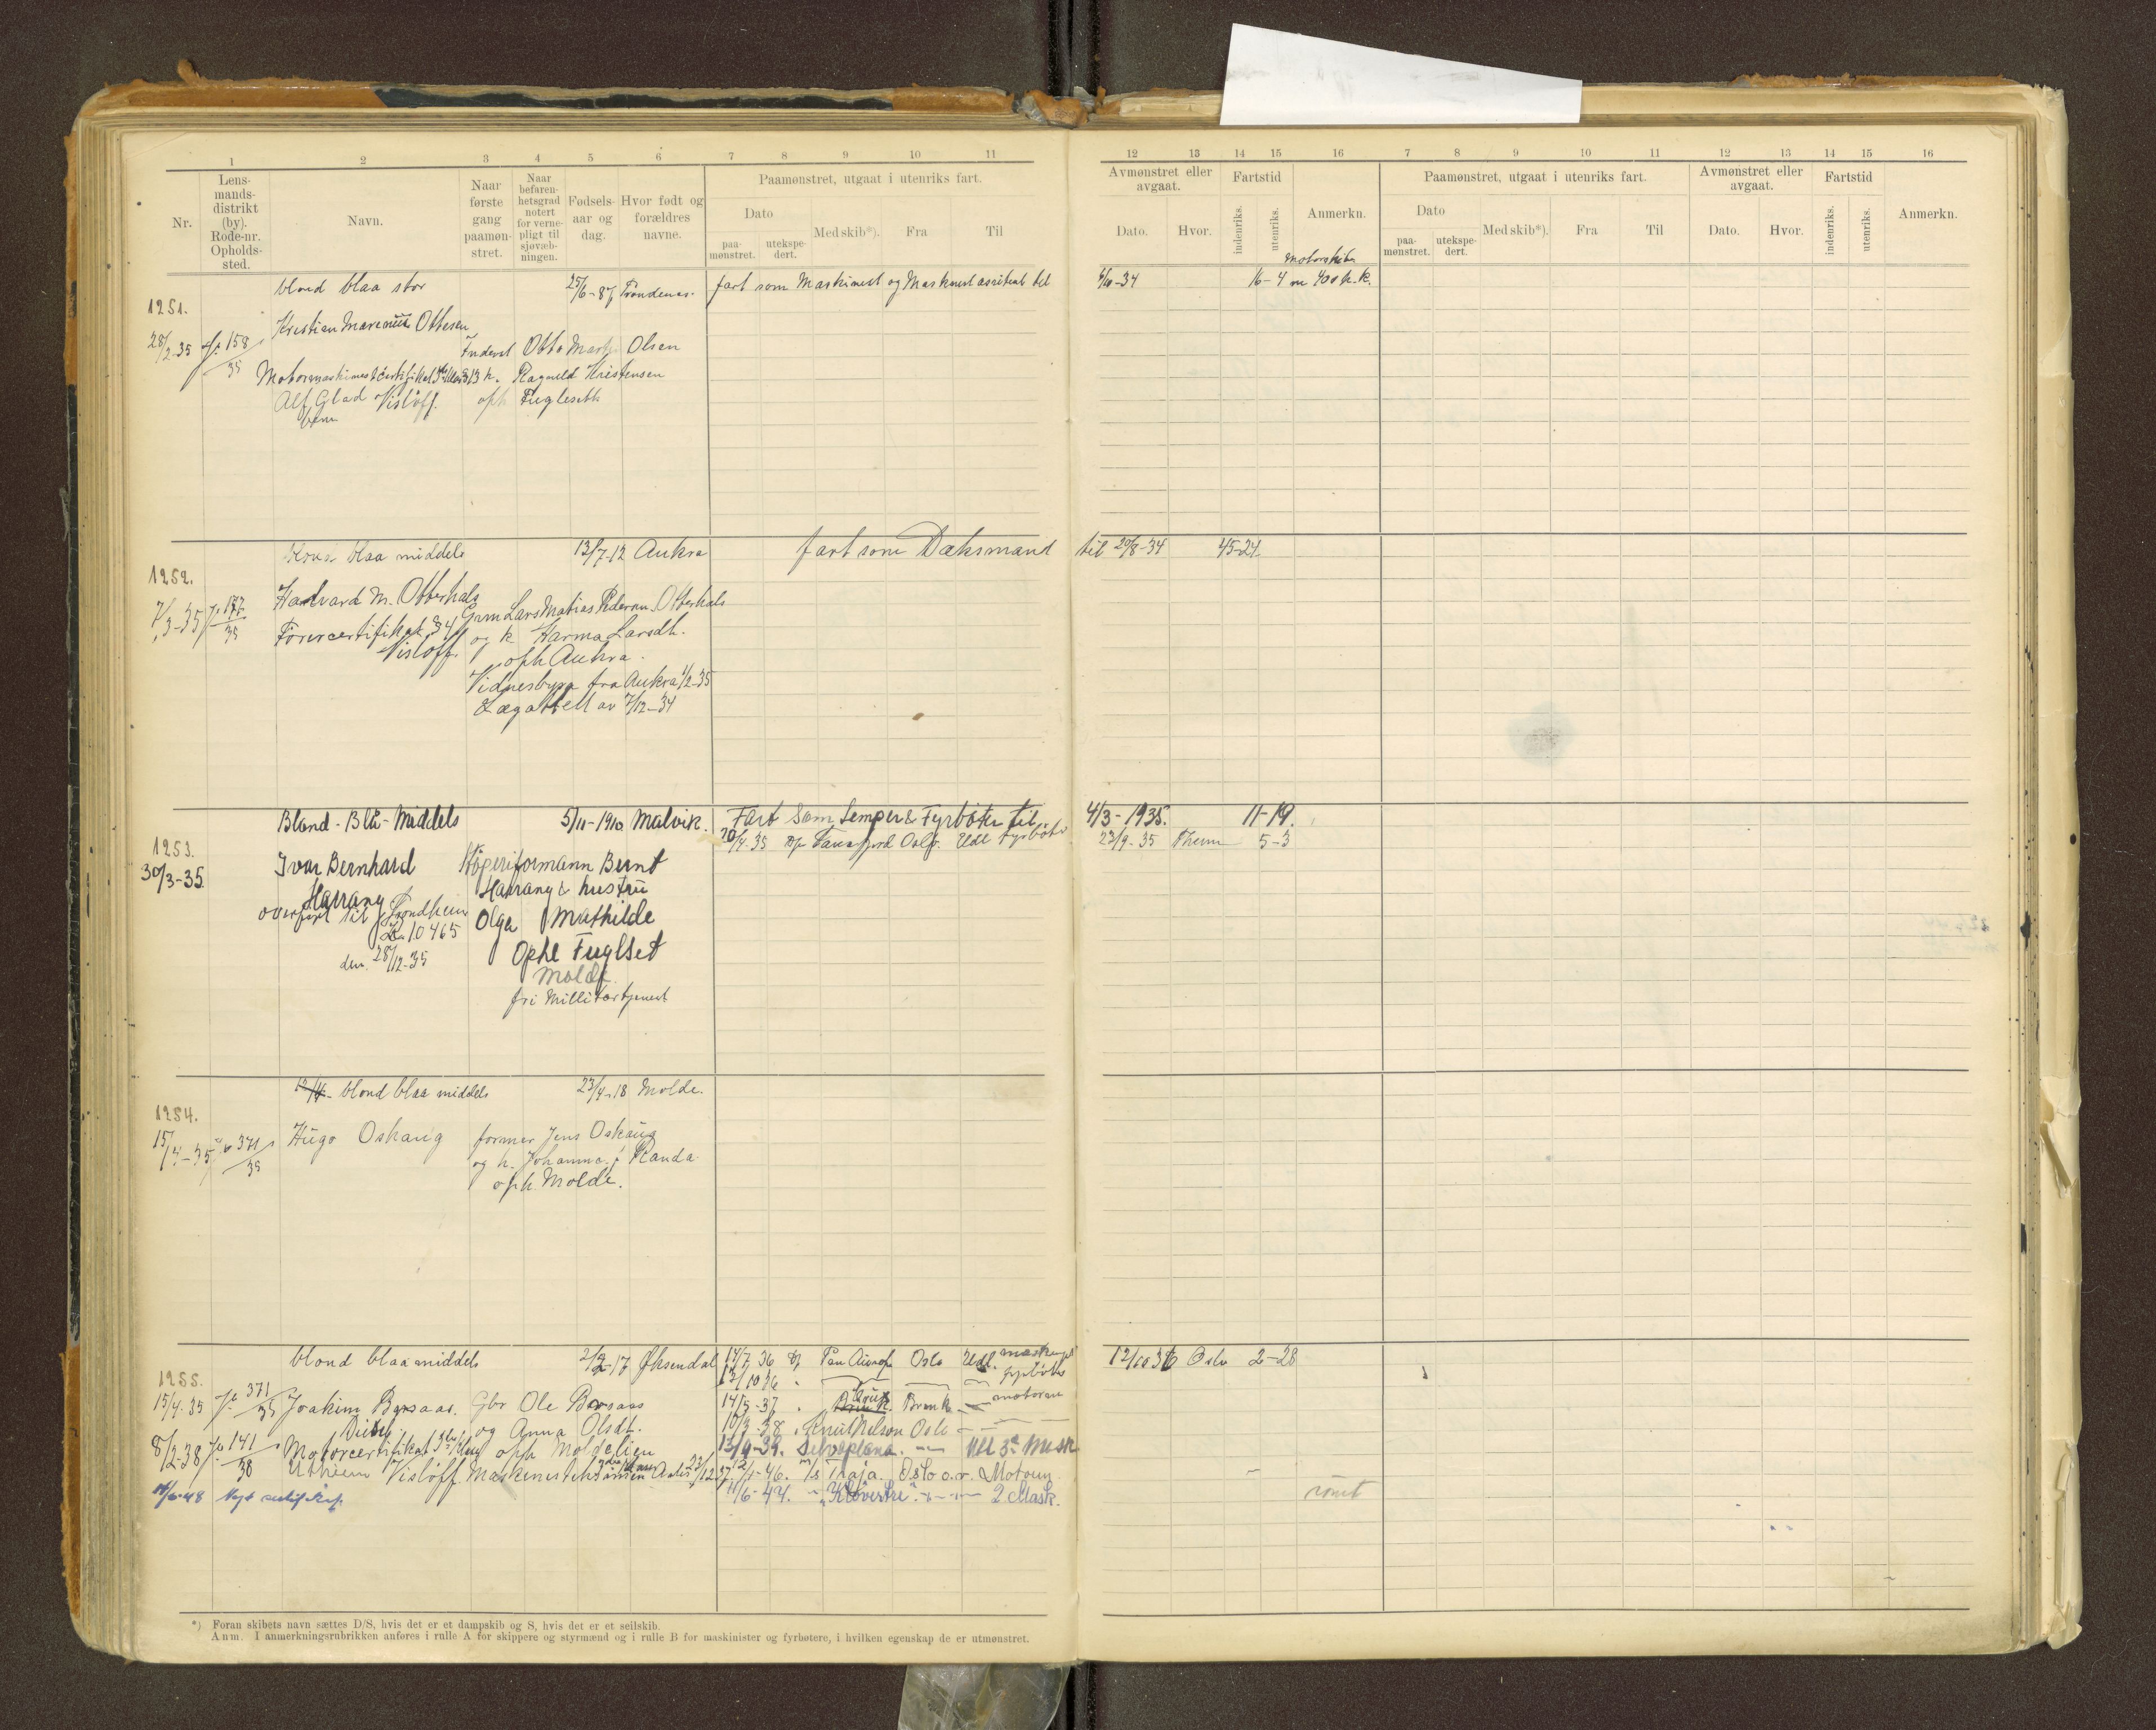 1 2 3 4 5 6 7 8 9 10 11
Nr.
Lens-
mands-
distrikt
(by).
Rode-nr.
Opholds-
sted.
Navn.
Naar
første
gang
paamøn-
stret.
Naar
befaren-
hetsgrad
notert
for verne-
pligt til
sjøvæb-
ningen.
Fødsels-
aar og
dag.
Hvor født og
forældres
navne.
Paamønstret, utgaat i utenriks fart.
Dato
paa-
mønstret.
utekspe-
dert.
Med skib*).
Fra
Til
12 13 14 15 16 7 8 9 10 11 12 13 14 15 16
Avmønstret eller
avgaat.
Dato.
Hvor.
Fartstid
indenriks.
utenriks.
Anmerkn.
Paamønstret, utgaat i utenriks fart.
Dato
paa-
mønstret.
utekspe-
dert.
Med skib*).
Fra
Til
Avmønstret eller
avgaat.
Dato.
Hvor.
Fartstid
indenriks.
utenriks.
Anmerkn.
blond blaa stor 25/6-87 Trondenes. fart som Maskinist og Maskinist assistent til 4/10-34 16-4 m 400 h.k.
1251.
28/2-35 158/35 Kristian Marenius Ottesen
Otto Olsen
Ragnild Kristensen
Alf Glad Visløff. oph Fugleseth
blond blaa middels 13/7-12 Aukra fart som Dæksmand til 20/8-34 45-24
1252.
7/3-35 177/35 Hadvard M. Otterhals
Grm Lars Matias Pedersen Otterhals
Førercertifikat § 4 og k Karma Larsdt.
Visløff. oph Aukra.
Vidnesbyrd fra Aukra 1/2-35
Lægattest av 7/12-34
Blond - Blå - Middels 5/11-1910 Malvik. Fart som Lemper & Fyrbøter til 4/3-1935. 11-19.
20/4-35 Tanafjord Oslo. Udl Fyrbøter 23/9-35 Them 5-3
1253.
30/3-35. Ivar Bernhard
Harrang
formann Bernt
Harrang & hustru
Olga Mathilde
overført til Trondheim
10465
den 28/12-35
Ophl Fuglset
Molde.
fri Millitærtjenest
12/4- blond blaa middels 23/4-18 Molde.
1254.
15/4-35 371/35 Hugo Oskaug former Jens Oskaug
og h. Johanna f Randa
oph. Molde.
blond blaa middels 2/2-17 Øksendal 14/7 36 Pan Oslo Udl. 12/10 36 Oslo 2-28
12/10 36 fyrbøter
1255.
15/4-35 371/35 Joakim Gbr Ole
14/5-37 Brevik motorm
Diesel og Anna Olsdt.
10/3-38 Knut Nelson Oslo
8/2-38 141/38 Motorcertifikat oph Moldelien
13/9-39. Silvaplana. Udl 3die Mask.
Visløff. 12/1-46. M/s Thaja. Oslo o.v. Motorm
11/6-47. "Kløvestre". 2 Mask.
rømt
*) Foran skibets navn sættes D/S, hvis det er et dampskib og S, hvis det er et seilskib.
Anm. I anmerkningsrubrikken anføres i rulle A for skippere og styrmænd og i rulle B for maskinister og fyrbøtere, i hvilken egenskap de er utmønstret.